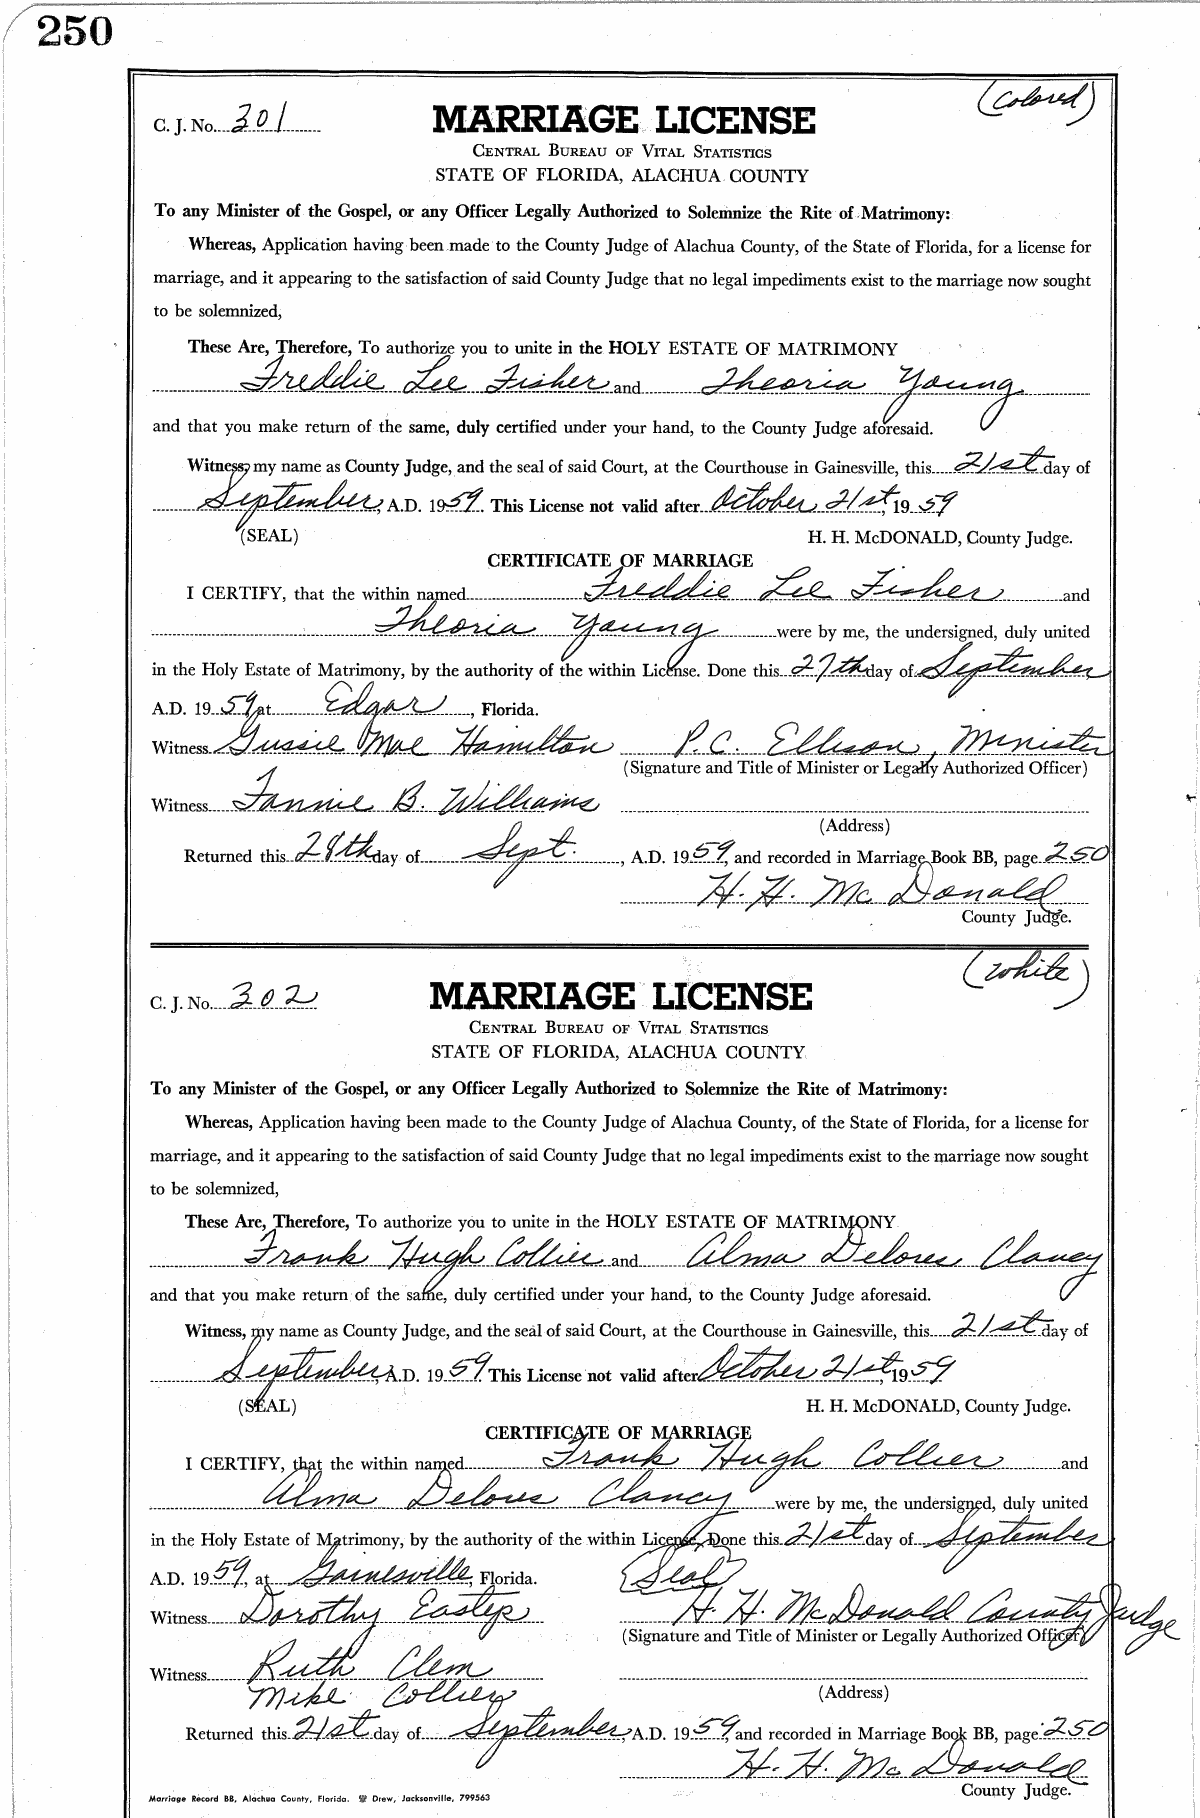 250
(Colored)
C. J. No. 301
MARRIAGE LICENSE
CENTRAL BUREAU OF VITAL STATISTICS
STATE OF FLORIDA, ALACHUA COUNTY
To any Minister of the Gospel, or any Officer Legally Authorized to Solemnize the Rite of Matrimony:
Whereas, Application having been made to the County Judge of Alachua County, of the State of Florida, for a license for
marriage, and it appearing to the satisfaction of said County Judge that no legal impediments exist to the marriage now sought
to be solemnized,
These Are, Therefore, To authorize you to unite in the HOLY ESTATE OF MATRIMONY
Freddie Lee Fisher and Theoria Young
and that you make return of the same, duly certified under your hand, to the County Judge aforesaid.
Witness, my name as County Judge, and the seal of said Court, at the Courthouse in Gainesville, this 21st day of
September, A.D. 1959. This License not valid after October 21st, 1959
(SEAL) H. H. McDONALD, County Judge.
CERTIFICATE OF MARRIAGE
I CERTIFY, that the within named Freddie Lee Fisher and
Theoria Young were by me, the undersigned, duly united
in the Holy Estate of Matrimony, by the authority of the within License. Done this 27th day of September
A.D. 1959, at Edgar, Florida.
Witness Gussie Mae Hamilton P.C. Ellison, Minister
(Signature and Title of Minister or Legally Authorized Officer)
Witness Fannie B. Williams
(Address)
Returned this 28th day of Sept., A.D. 1959, and recorded in Marriage Book BB, page 250
H. H. McDonald
County Judge.
(White)
C. J. No. 302
MARRIAGE LICENSE
CENTRAL BUREAU OF VITAL STATISTICS
STATE OF FLORIDA, ALACHUA COUNTY
To any Minister of the Gospel, or any Officer Legally Authorized to Solemnize the Rite of Matrimony:
Whereas, Application having been made to the County Judge of Alachua County, of the State of Florida, for a license for
marriage, and it appearing to the satisfaction of said County Judge that no legal impediments exist to the marriage now sought
to be solemnized,
These Are, Therefore, To authorize you to unite in the HOLY ESTATE OF MATRIMONY
Frank Hugh Collier and Alma Delores Clancy
and that you make return of the same, duly certified under your hand, to the County Judge aforesaid.
Witness, my name as County Judge, and the seal of said Court, at the Courthouse in Gainesville, this 21st day of
September, A.D. 1959. This License not valid after October 21st, 1959
(SEAL) H. H. McDONALD, County Judge.
CERTIFICATE OF MARRIAGE
I CERTIFY, that the within named Frank Hugh Collier and
Alma Delores Clancy were by me, the undersigned, duly united
in the Holy Estate of Matrimony, by the authority of the within License. Done this 21st day of September
A.D. 1959, at Gainesville, Florida. (Seal)
Witness Dorothy Eastep H. H. McDonald County Judge
(Signature and Title of Minister or Legally Authorized Officer)
Witness Ruth Clem
Mike Collier
(Address)
Returned this 21st day of September, A.D. 1959, and recorded in Marriage Book BB, page 250
H. H. McDonald
County Judge.
Marriage Record BB, Alachua County, Florida. Drew, Jacksonville, 799563